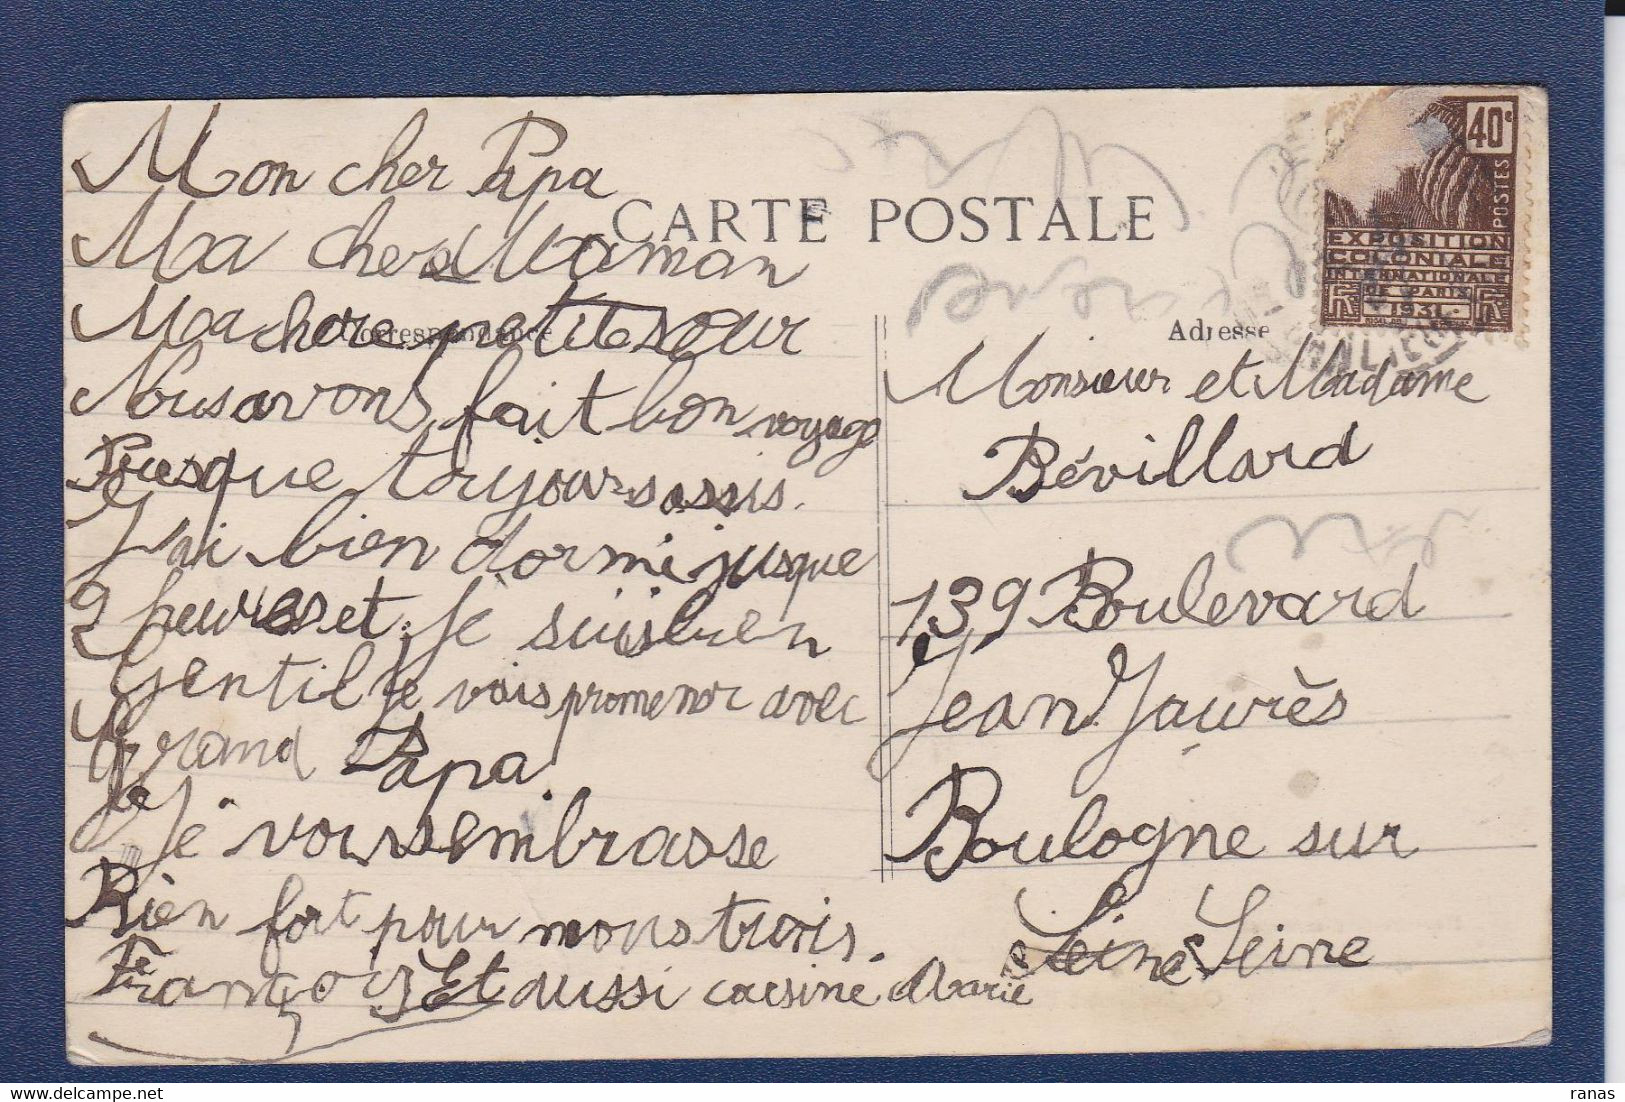 Mon cher Papa
Ma chere Maman
Ma chere petite sœur
Nous avons fait bon voyage
Presque toujours assis.
J'ai bien dormi jusque
9 heures et je suis bien
gentil je vais promener avec
Grand Papa.
Je vous embrasse
Bien fort pour nous trois.
François Et aussi cousine Marie
CARTE POSTALE
Correspondance
Adresse
40c
POSTES
EXPOSITION
COLONIALE
INTERNATIONALE
DE PARIS
1931
Monsieur et Madame
Bévillard
139 Boulevard
Jean Jaurès
Boulogne sur
Seine Seine
ranas